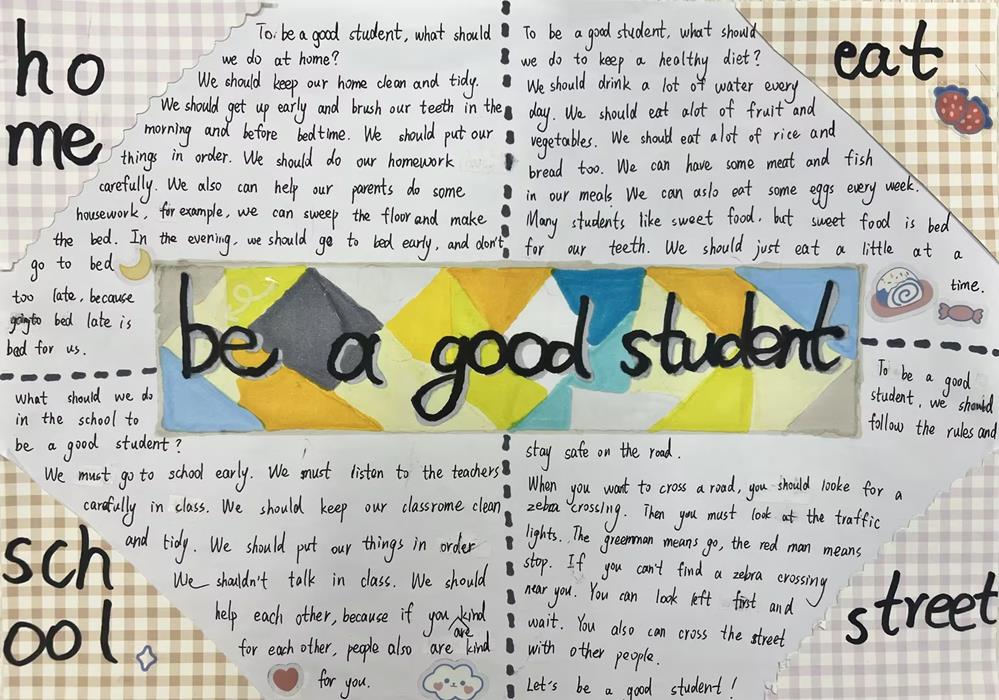 ho
me
To be a good student, what should
we do at home?
We should keep our home clean and tidy.
We should get up early and brush our teeth in the
morning and before bedtime. We should put our
things in order. We should do our homework
carefully. We also can help our parents do some
housework, for example, we can sweep the floor and make
the bed. In the evening, we should go to bed early, and don't
go to bed
too late, because
going to bed late is
bad for us.
eat
To be a good student, what should
we do to keep a healthy diet?
We should drink a lot of water every
day. We should eat alot of fruit and
vegetables. We should eat a lot of rice and
bread too. We can have some meat and fish
in our meals. We can aslo eat some eggs every week.
Many students like sweet food, but sweet food is bed
for our teeth. We should just eat a little at a
time.
be a good student
sch
ool
What should we do
in the school to
be a good student?
We must go to school early. We must listen to the teachers
carefully in class. We should keep our classrome clean
and tidy. We should put our things in order
We shouldn't talk in class. We should
help each other, because if you are kind
for each other, people also are kind
for you.
street
To be a good
student, we should
follow the rules and
stay safe on the road.
When you want to cross a road, you should looke for a
zebra crossing. Then you must look at the traffic
lights. The greenman means go, the red man means
stop. If you can't find a zebra crossing
near you. You can look left first and
wait. You also can cross the street
with other people.
Let's be a good student!